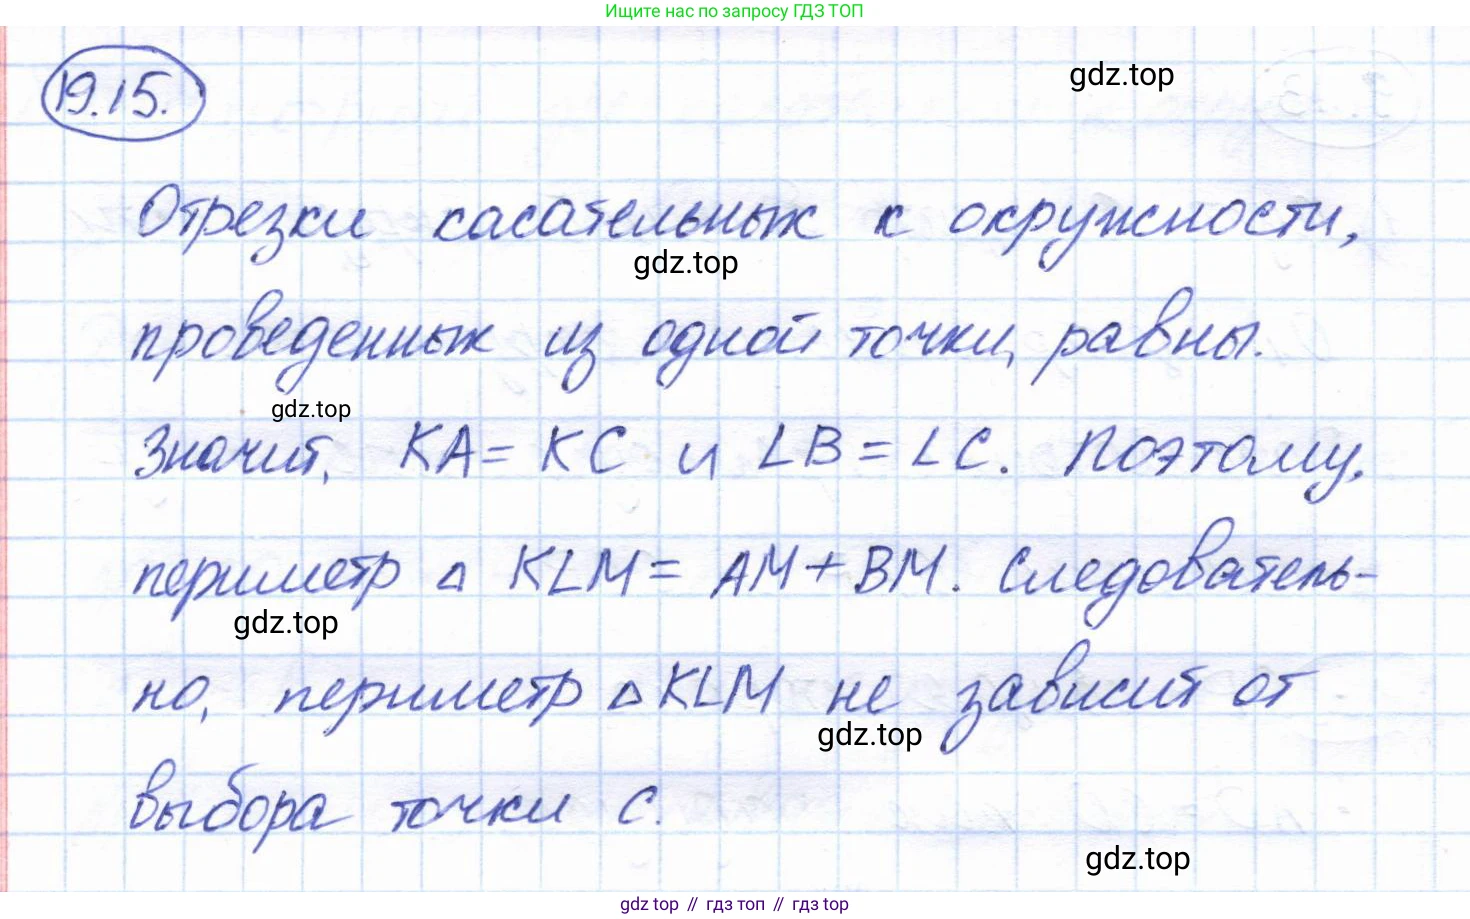 Ищите нас по запросу ГДЗ ТОП
19.15.
gdz.top
Отрезки касательных к окружности,
gdz.top
проведенных из одной точки, равны.
gdz.top
Значит, KA = KC и LB = LC. Поэтому,
периметр △ KLM = AM + BM. Следователь-
gdz.top
но, периметр △ KLM не зависит от
gdz.top
выбора точки C.
gdz.top
gdz top // гдз топ // гдз top